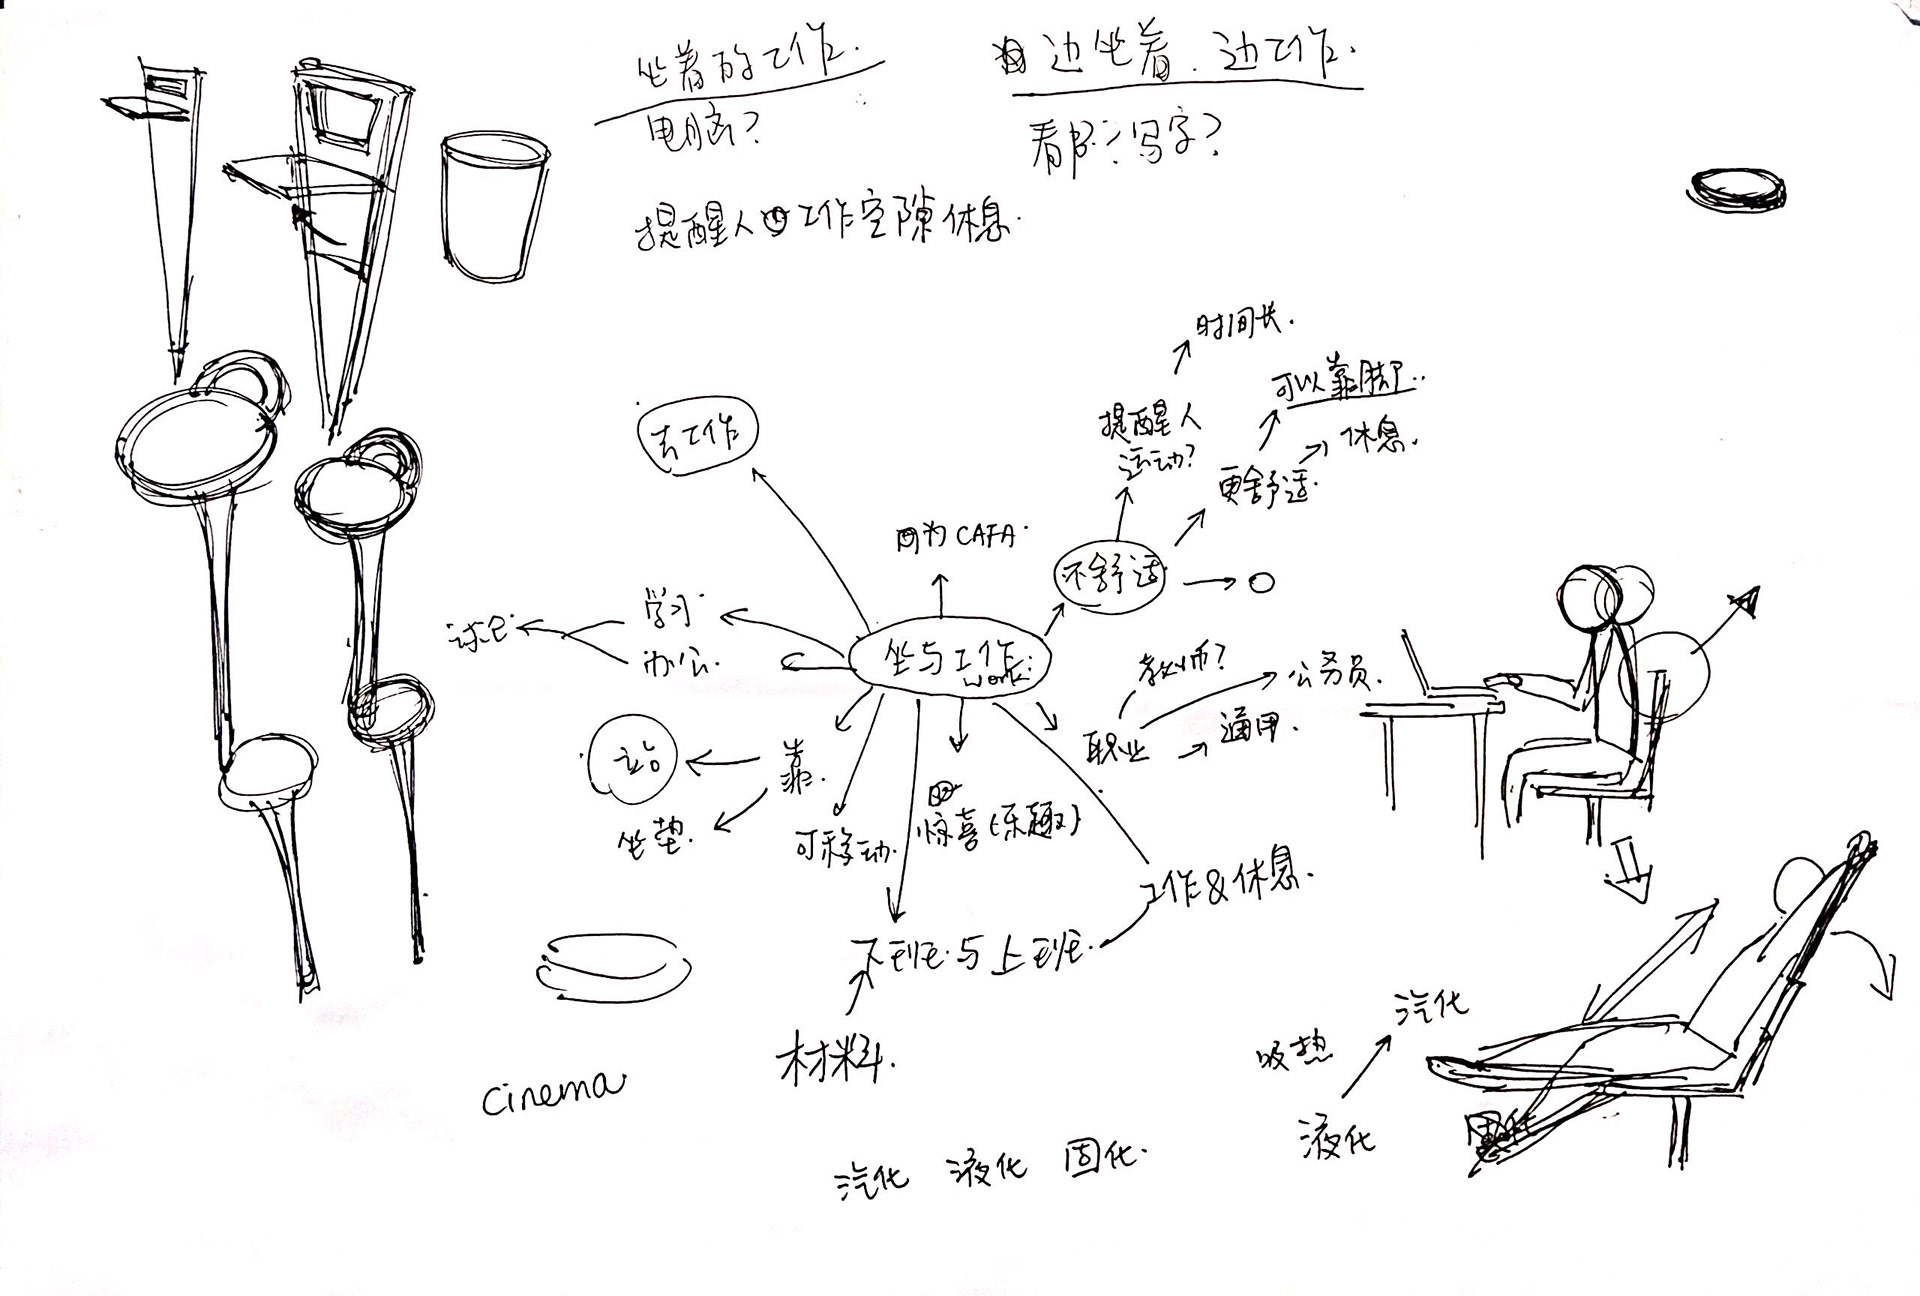 坐着的工作.
边坐着.边工作.
电脑?
看书?写字?
提醒人 工作空隙休息.
时间长.
可以靠脚..
提醒人
运动?
休息.
更舒适.
去工作
因为CAFA.
不舒适
学习.
讨论.
办公.
坐与工作
work.
教师?
公务员.
职业
通用.
站
靠.
坐垫.
可移动.
惊喜(乐趣)
工作&休息.
下班与上班.
材料.
cinema.
吸热
汽化
液化
汽化 液化 固化.